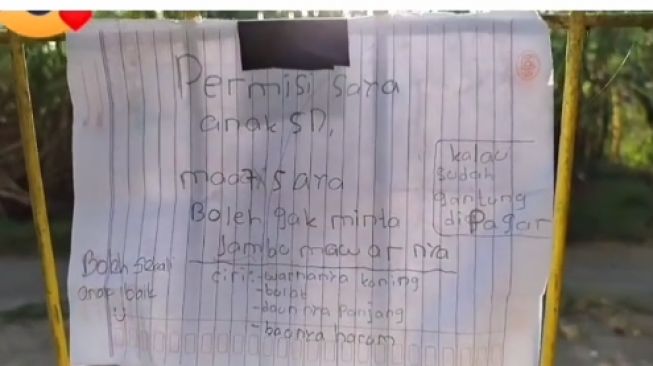 Permisi saya
anak SD,
maaf saya
Boleh gak minta
jambu mawar nya
kalau
sudah
gantung
di Pagar
Boleh Sekali
anak baik
ciri:-warnanya kuning
-bulat
-daun nya Panjang
-baonya harom